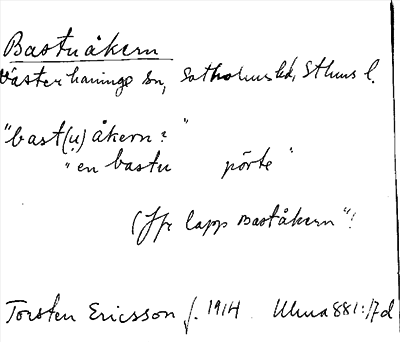 Bastuåkern
Västerhaninge sn, Sotholms hd, Sthms l.
"bast(u)åkern?"
"en bastu pörte"
(Jfr lapp Baståkern"!
Torsten Ericsson f. 1914 Uma 881:17d